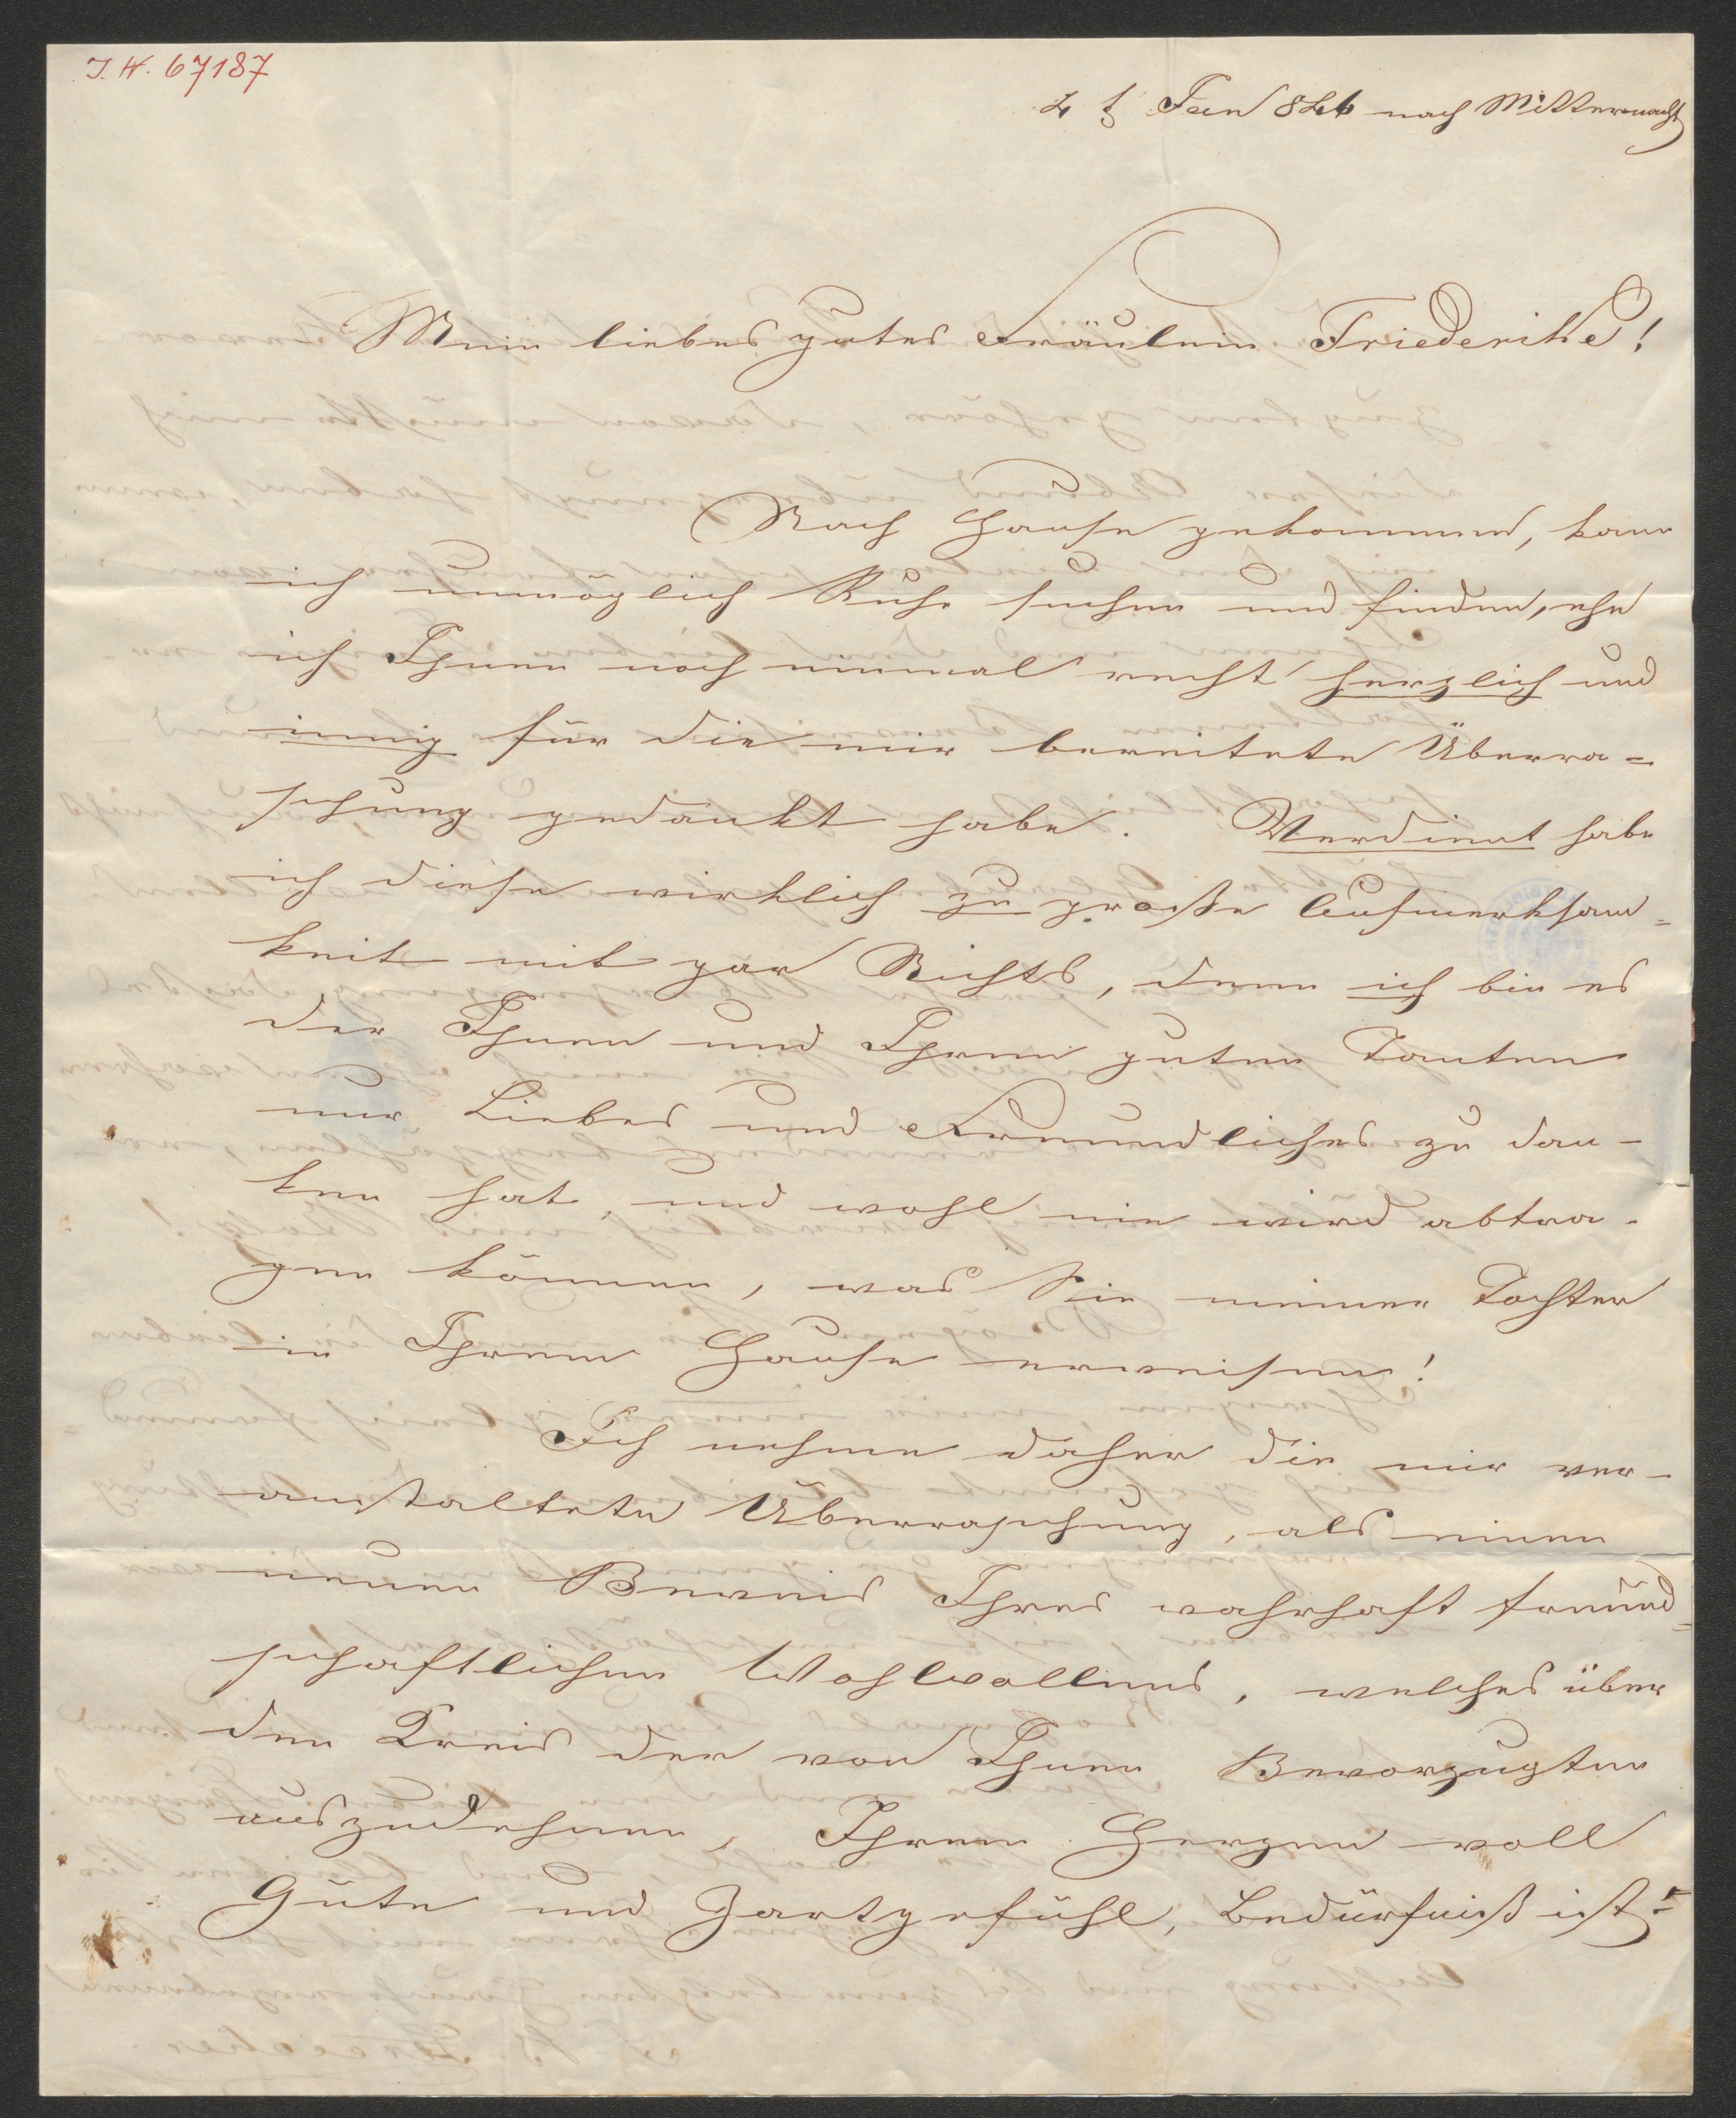 J. N. 67187
4 t Jan 846 nach Mitternacht
Mein liebes gutes Fräulein Friederike!
Nach Hause gekommen, kann
ich unmöglich Ruhe suchen und finden, ehe
ich Ihnen noch einmal recht herzlich und
innig für die mir bereitete Überra=
schung gedankt habe. Verdient habe
ich diese wirklich zu große Aufmerksam=
keit mit gar Nichts, denn ich bin es
der Ihnen und Ihren guten Tanten
nur Liebes und Freundliches zu dan-
ken hat, und wohl nie wird abtra-
gen können, was Sie meiner Tochter
in Ihrem Hause erweisen!
Ich nehme daher die mir ver-
anstaltete Überraschung, als einen
neuen Beweis Ihres wahrhaft freund=
schaftlichen Wohlwollens, welches über
den Kreis der von Ihnen Bevorzugten
auszudehnen, Ihrem Herzen voll
Güte und Zartgefühl, Bedürfniß ist